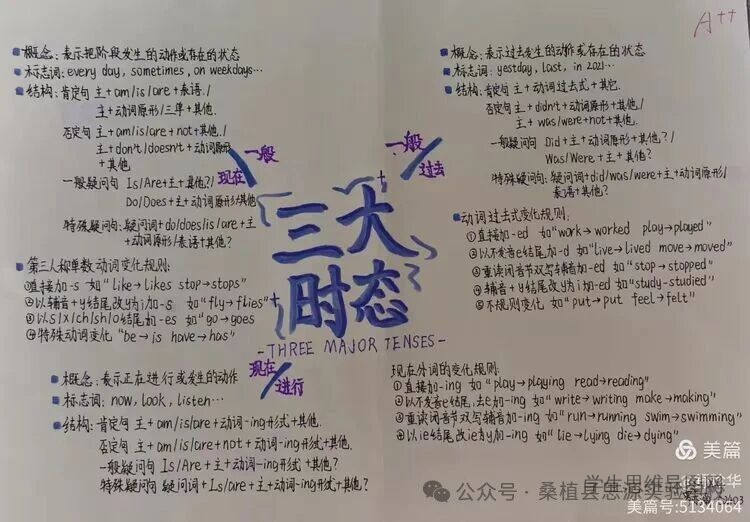 A++
概念：表示把阶段发生的动作或存在的状态
标志词：every day, sometimes, on weekdays…
结构：肯定句 主+am/is/are+表语./
主+动词原形/三单+其他.
否定句 主+am/is/are+not+其他./
主+don't/doesn't+动词原形
+其他
一般疑问句 Is/Are+主+其他?/
Do/Does+主+动词原形+其他
特殊疑问句：疑问词+do/does/is/are+主
+动词原形/表语+其他?
第三人称单数动词变化规则：
①直接加-s 如"like→likes stop→stops"
②以辅音+y结尾改y为i加-s 如"fly→flies"
③以s/x/ch/sh/o结尾加-es 如"go→goes
④特殊动词变化 "be→is have→has"
一般
现在
概念：表示过去发生的动作或存在的状态
标志词：yestday, last, in 2021…
结构：肯定句 主+动词过去式+其它.
否定句 主+didn't+动词原形+其他./
主+was/were+not+其他.
一般疑问句 Did+主+动词原形+其他?/
Was/Were+主+其他?
特殊疑问句：疑问词+did/was/were+主+动词原形/
表语+其他?
一般
过去
动词过去式变化规则：
①直接加-ed 如"work→worked play→played"
②以不发音e结尾加-d 如"live→lived move→moved"
③重读闭音节双写辅音加-ed 如"stop→stopped"
④辅音+y结尾改y为i加-ed 如"study-studied"
⑤不规则变化 如"put→put feel→felt"
三大
时态
-THREE MAJOR TENSES-
现在
进行
概念：表示正在进行或发生的动作
标志词：now, look, listen…
结构：肯定句 主+am/is/are+动词-ing形式+其他.
否定句 主+am/is/are+not+动词-ing形式+其他.
一般疑问句 Is/Are+主+动词-ing形式+其他?
特殊疑问句 疑问词+Is/are+主+动词-ing形式+其他?
现在分词的变化规则：
①直接加-ing 如"play→playing read→reading"
②以不发音e结尾,去e加-ing 如"write→writing make→making"
③重读闭音节双写辅音加-ing 如"run→running swim→swimming"
④以ie结尾改ie为y加-ing 如"lie→lying die→dying"
美篇
学生思维导图
公众号·桑植县思源实验学校
美篇号:5134064